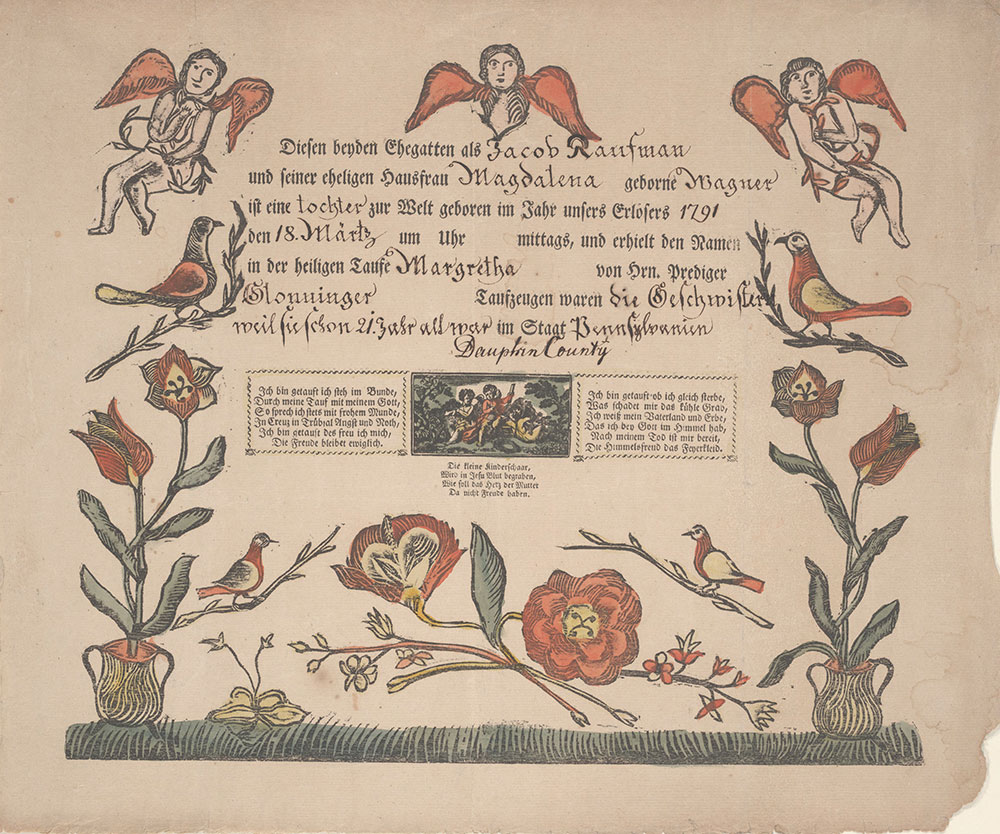 Diesen beyden Ehegatten als Jacob Kaufman
und seiner eheligen Hausfrau Magdalena geborne Wagner
ist eine tochter zur Welt geboren im Jahr unsers Erlösers 1791
den 18. Märtz um Uhr mittags, und erhielt den Namen
in der heiligen Taufe Margretha von Hrn. Prediger
Glonninger Taufzeugen waren die Geschwister
weil sie schon 21 Jahr alt war im Staat Pennsylvanien
Dauphin County
Ich bin getauft ich steh im Bunde,
Durch meine Tauf mit meinem Gott,
So sprech ich stets mit frohem Munde,
In Creuz in Trübsal Angst und Noth,
Ich bin getauft des freu ich mich,
Die Freude bleibet ewiglich.
Ich bin getauft ob ich gleich sterbe,
Was schadet mir das kühle Grab,
Ich weiß mein Vaterland und Erbe,
Das ich bey Gott im Himmel hab,
Nach meinem Tod ist mir bereit,
Die Himmelsfreud das Feyerkleid.
Die kleine Kinderschaar,
Wird in Jesu Blut begraben,
Wie soll das Herz der Mutter
Da nicht Freude haben.